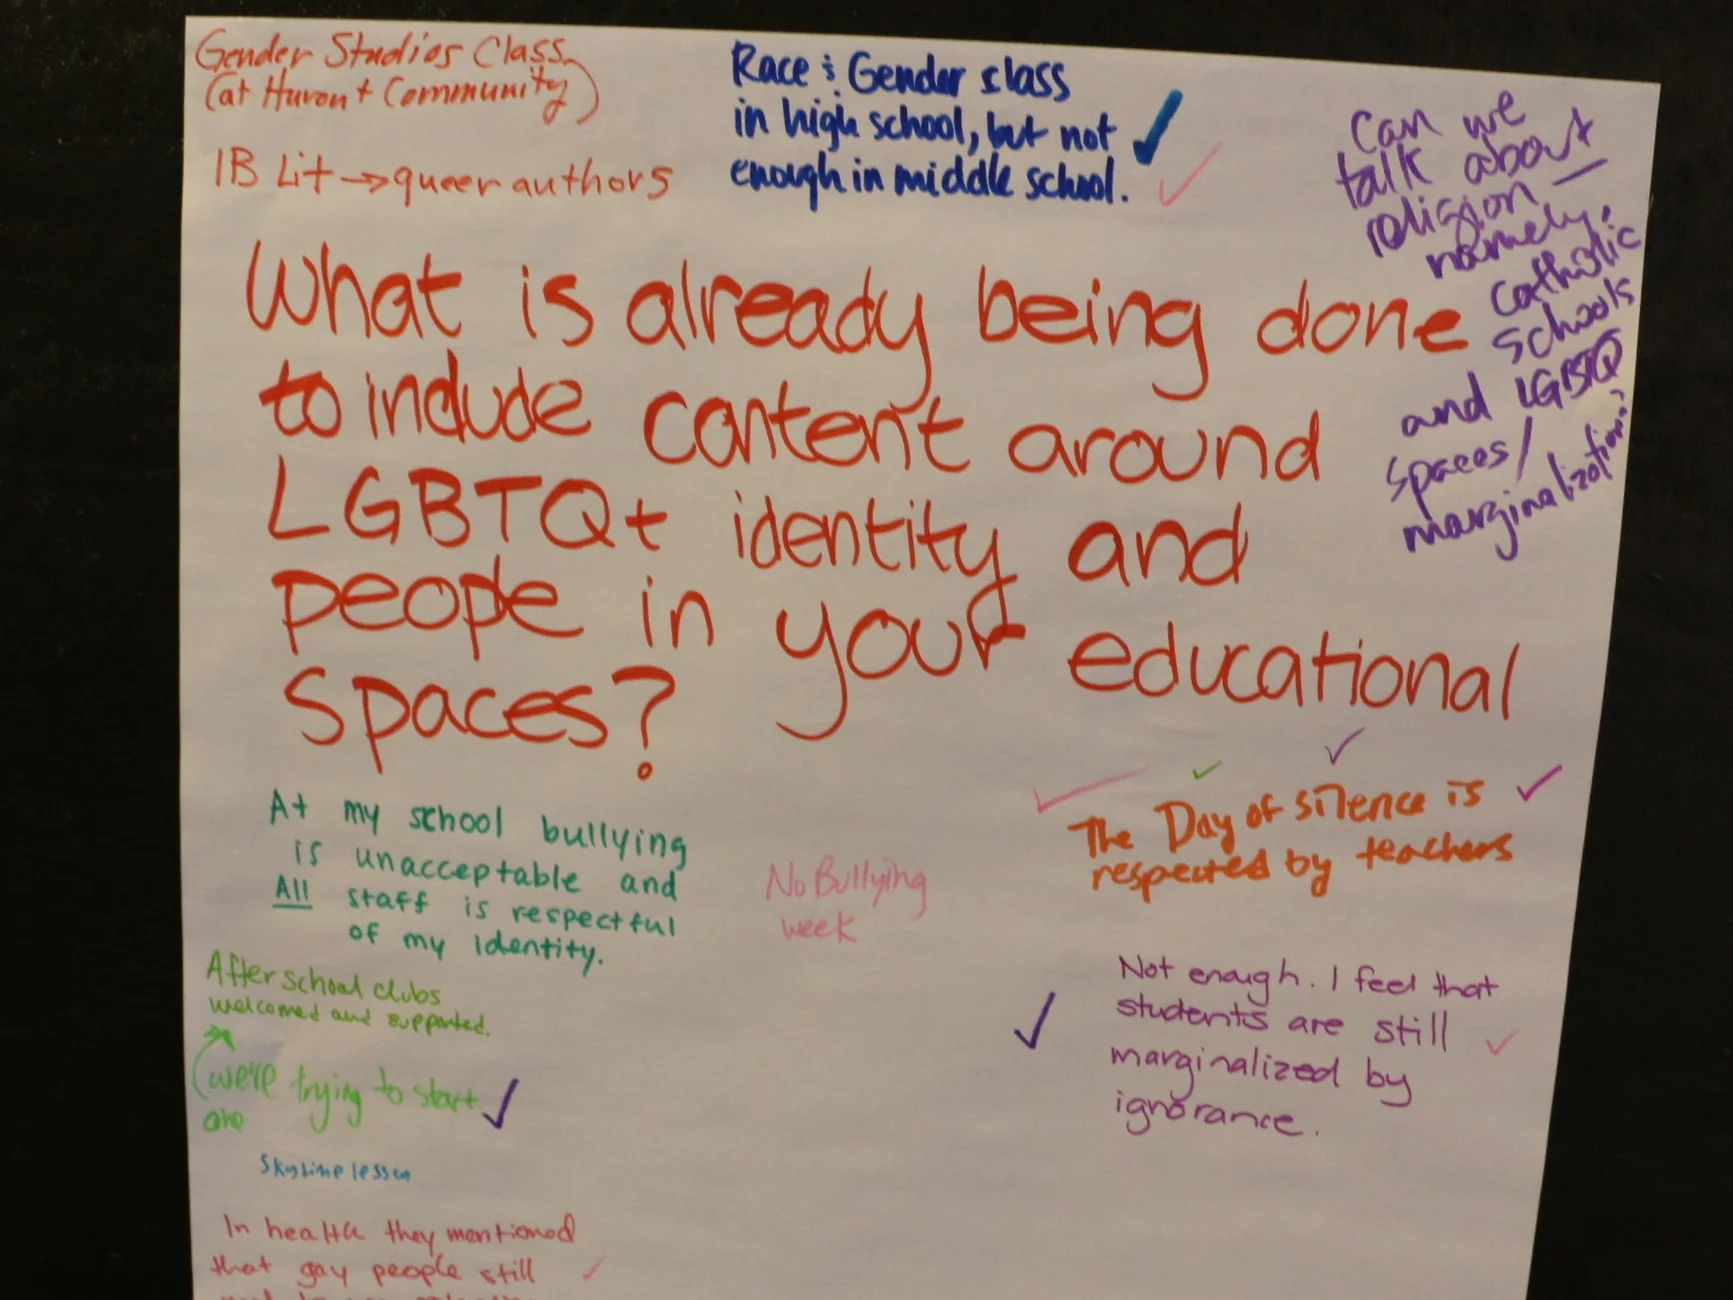 Gender Studies Class
(at Huron + Community)
IB Lit → queer authors
Race & Gender class
in high school, but not
enough in middle school.
Can we
talk about
religion —
namely,
catholic
schools
and LGBTQ
spaces/
marginalization?
What is already being done
to include content around
LGBTQ+ identity and
people in your educational
spaces?
At my school bullying
is unacceptable and
All staff is respectful
of my identity.
No Bullying
week
The Day of silence is
respected by teachers
After school clubs
welcomed and supported.
(we're trying to start
one
Not enough. I feel that
students are still
marginalized by
ignorance.
Skyline lesson
In health they mentioned
that gay people still